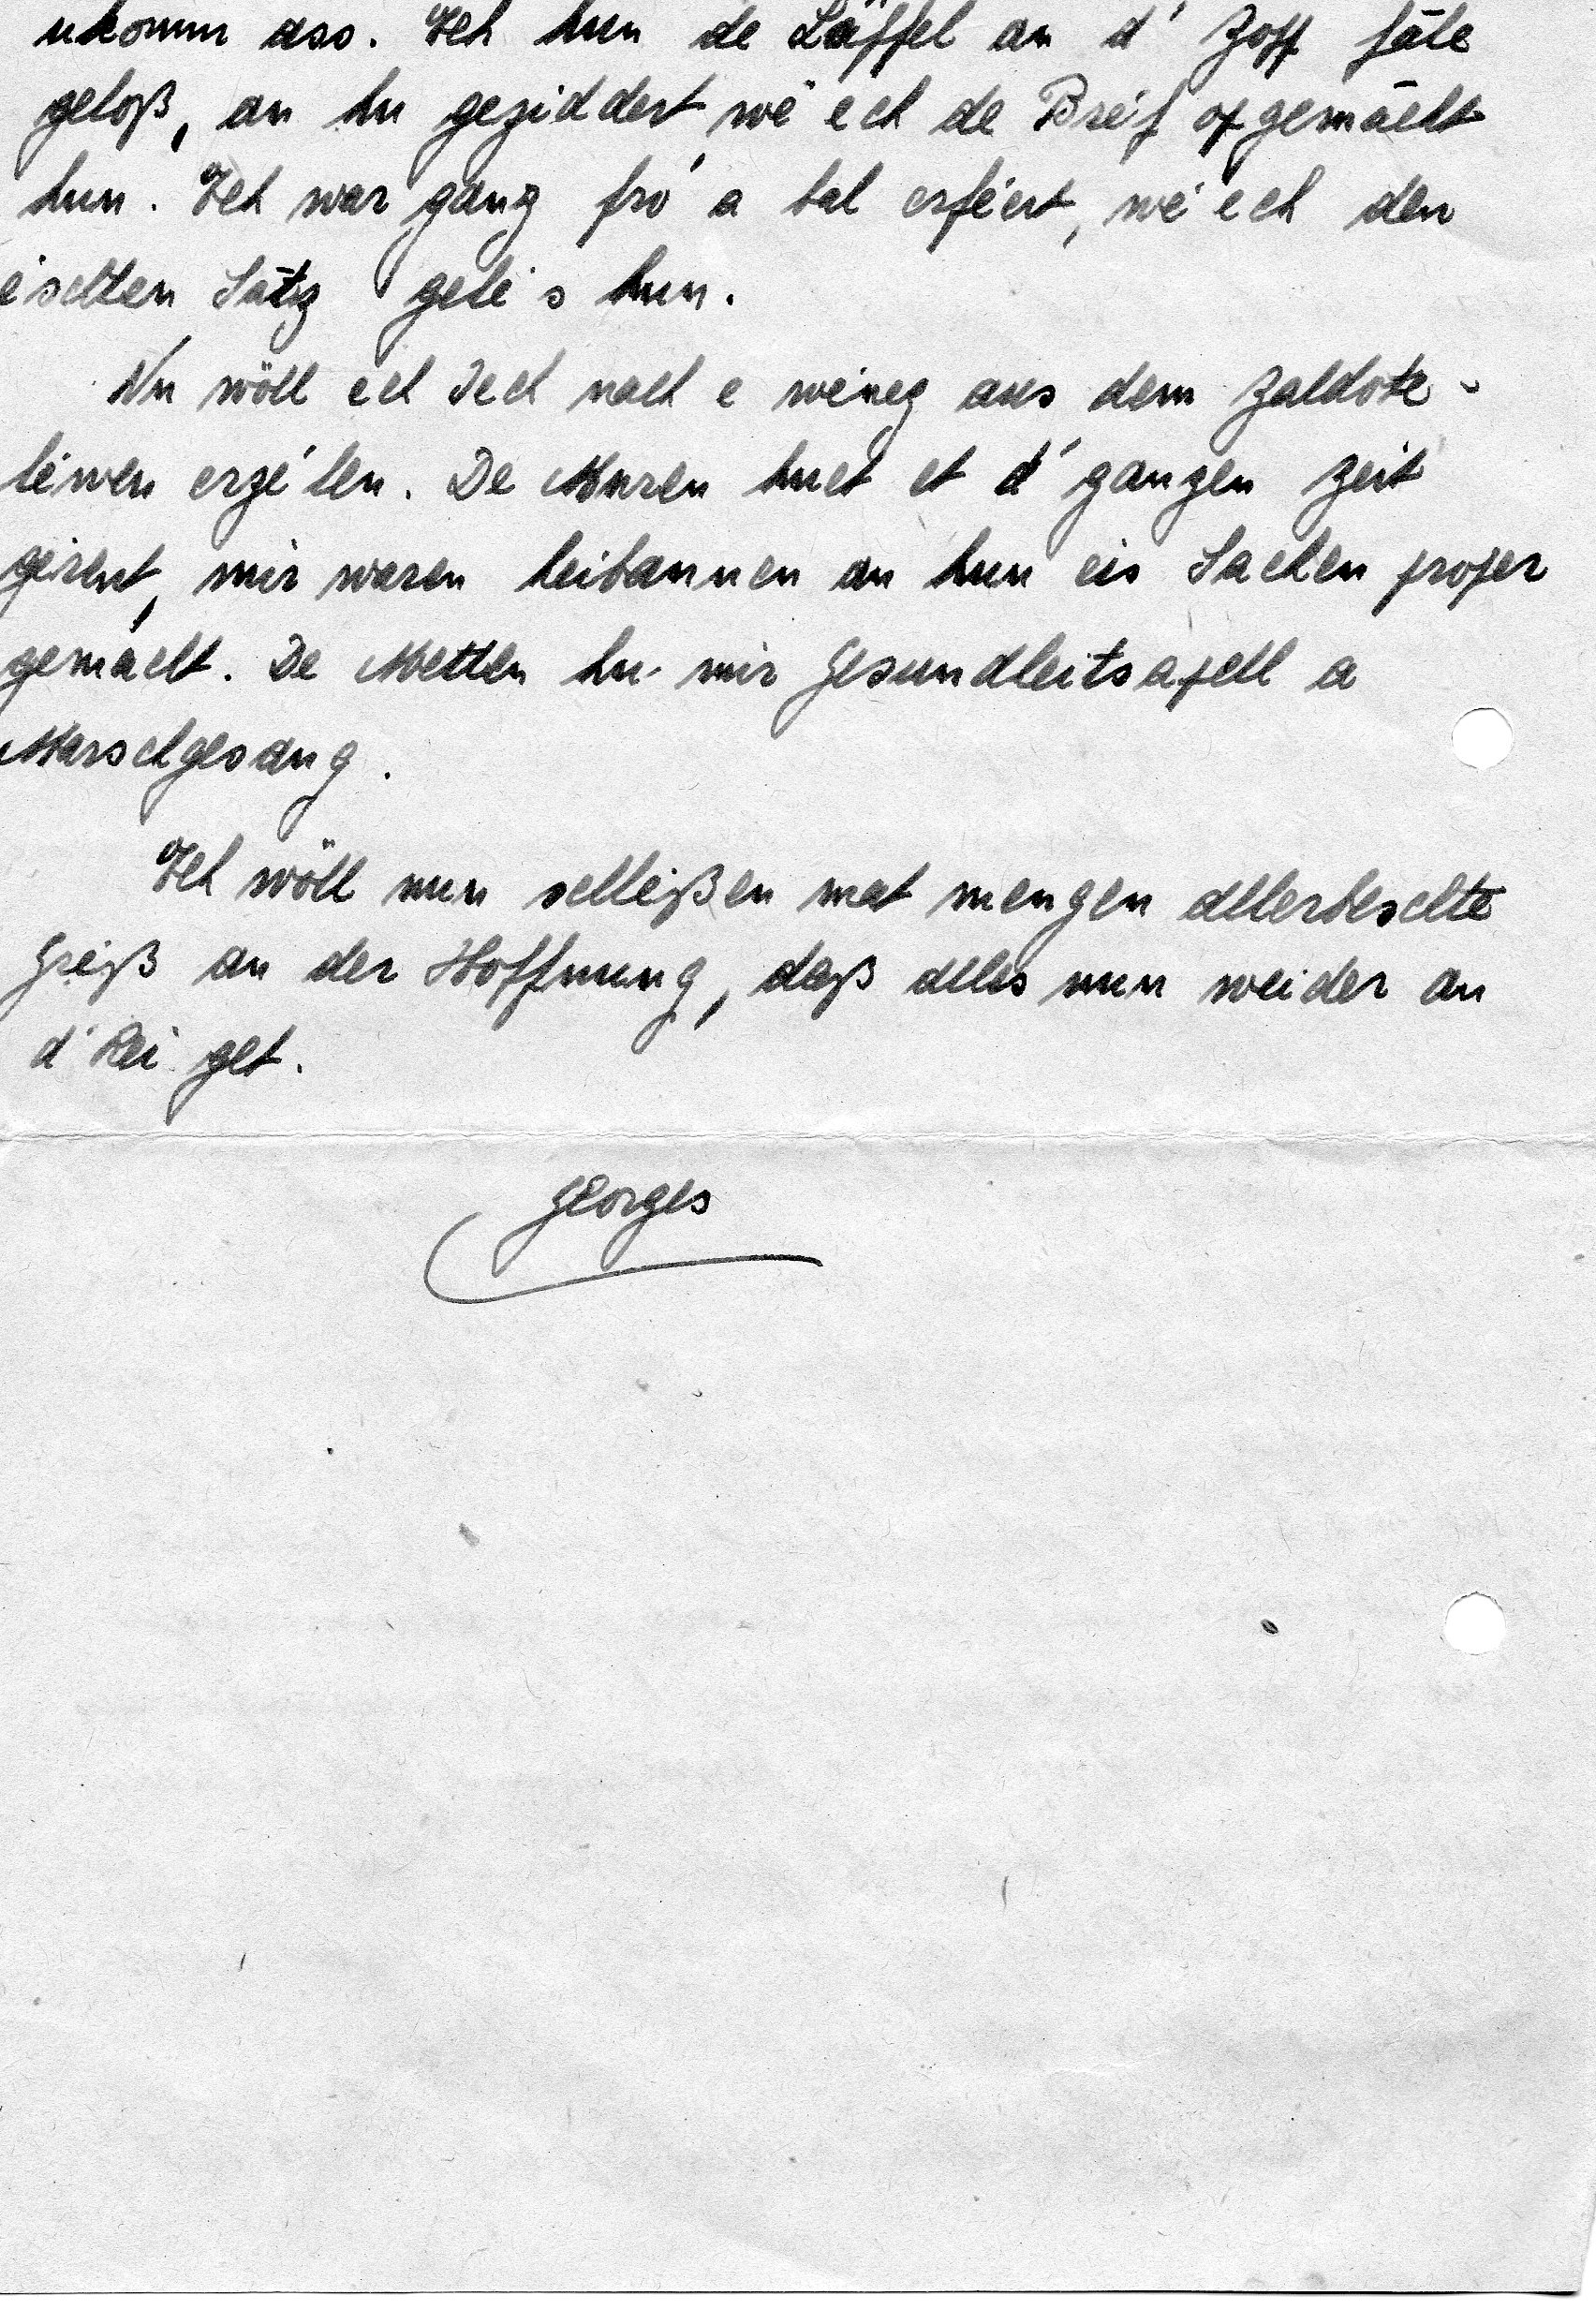 ukomm ass. Ech hun de Läffel an d' Zopp fāle
geloß, an hu geziddert wë ech de Bréf opgemācht
hun. Ech war ganz fro' a bal erféert, wé ech den
éischten Sātz gelies hun.
Nu wöll ech Iech nach e wéineg aus dem Zaldote-
liewen erzé'len. De Muren huet et d' ganzen Zeit
gerent, mir waren heibannen an hun eis Sachen proper
gemācht. De Metten hu mir Gesundheitsapell a
Marschgesang.
Ech wöll nun schléißen mat mengen allerbeschte
Gréiß an der Hoffnung, daß alles nun weider an
d' Rei get.
Georges